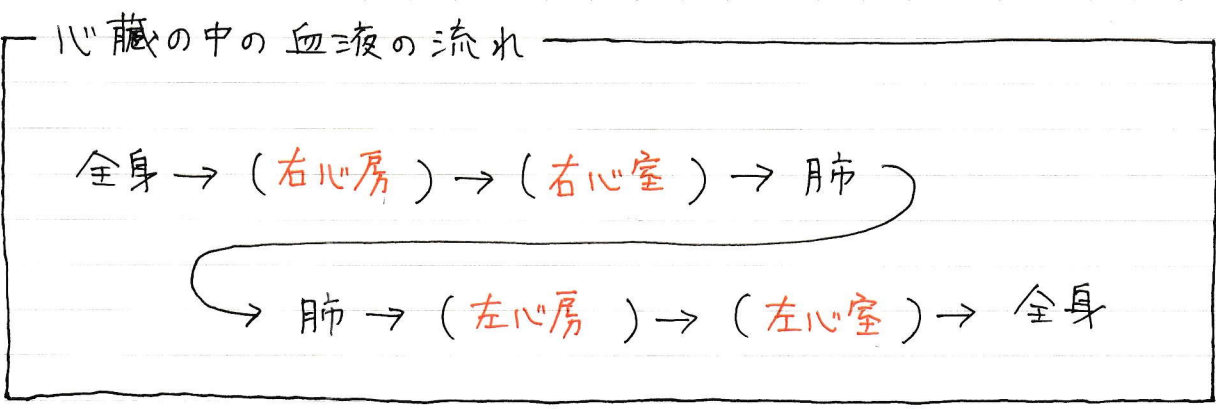 心臓の中の血液の流れ
全身→(右心房)→(右心室)→肺
→肺→(左心房)→(左心室)→全身